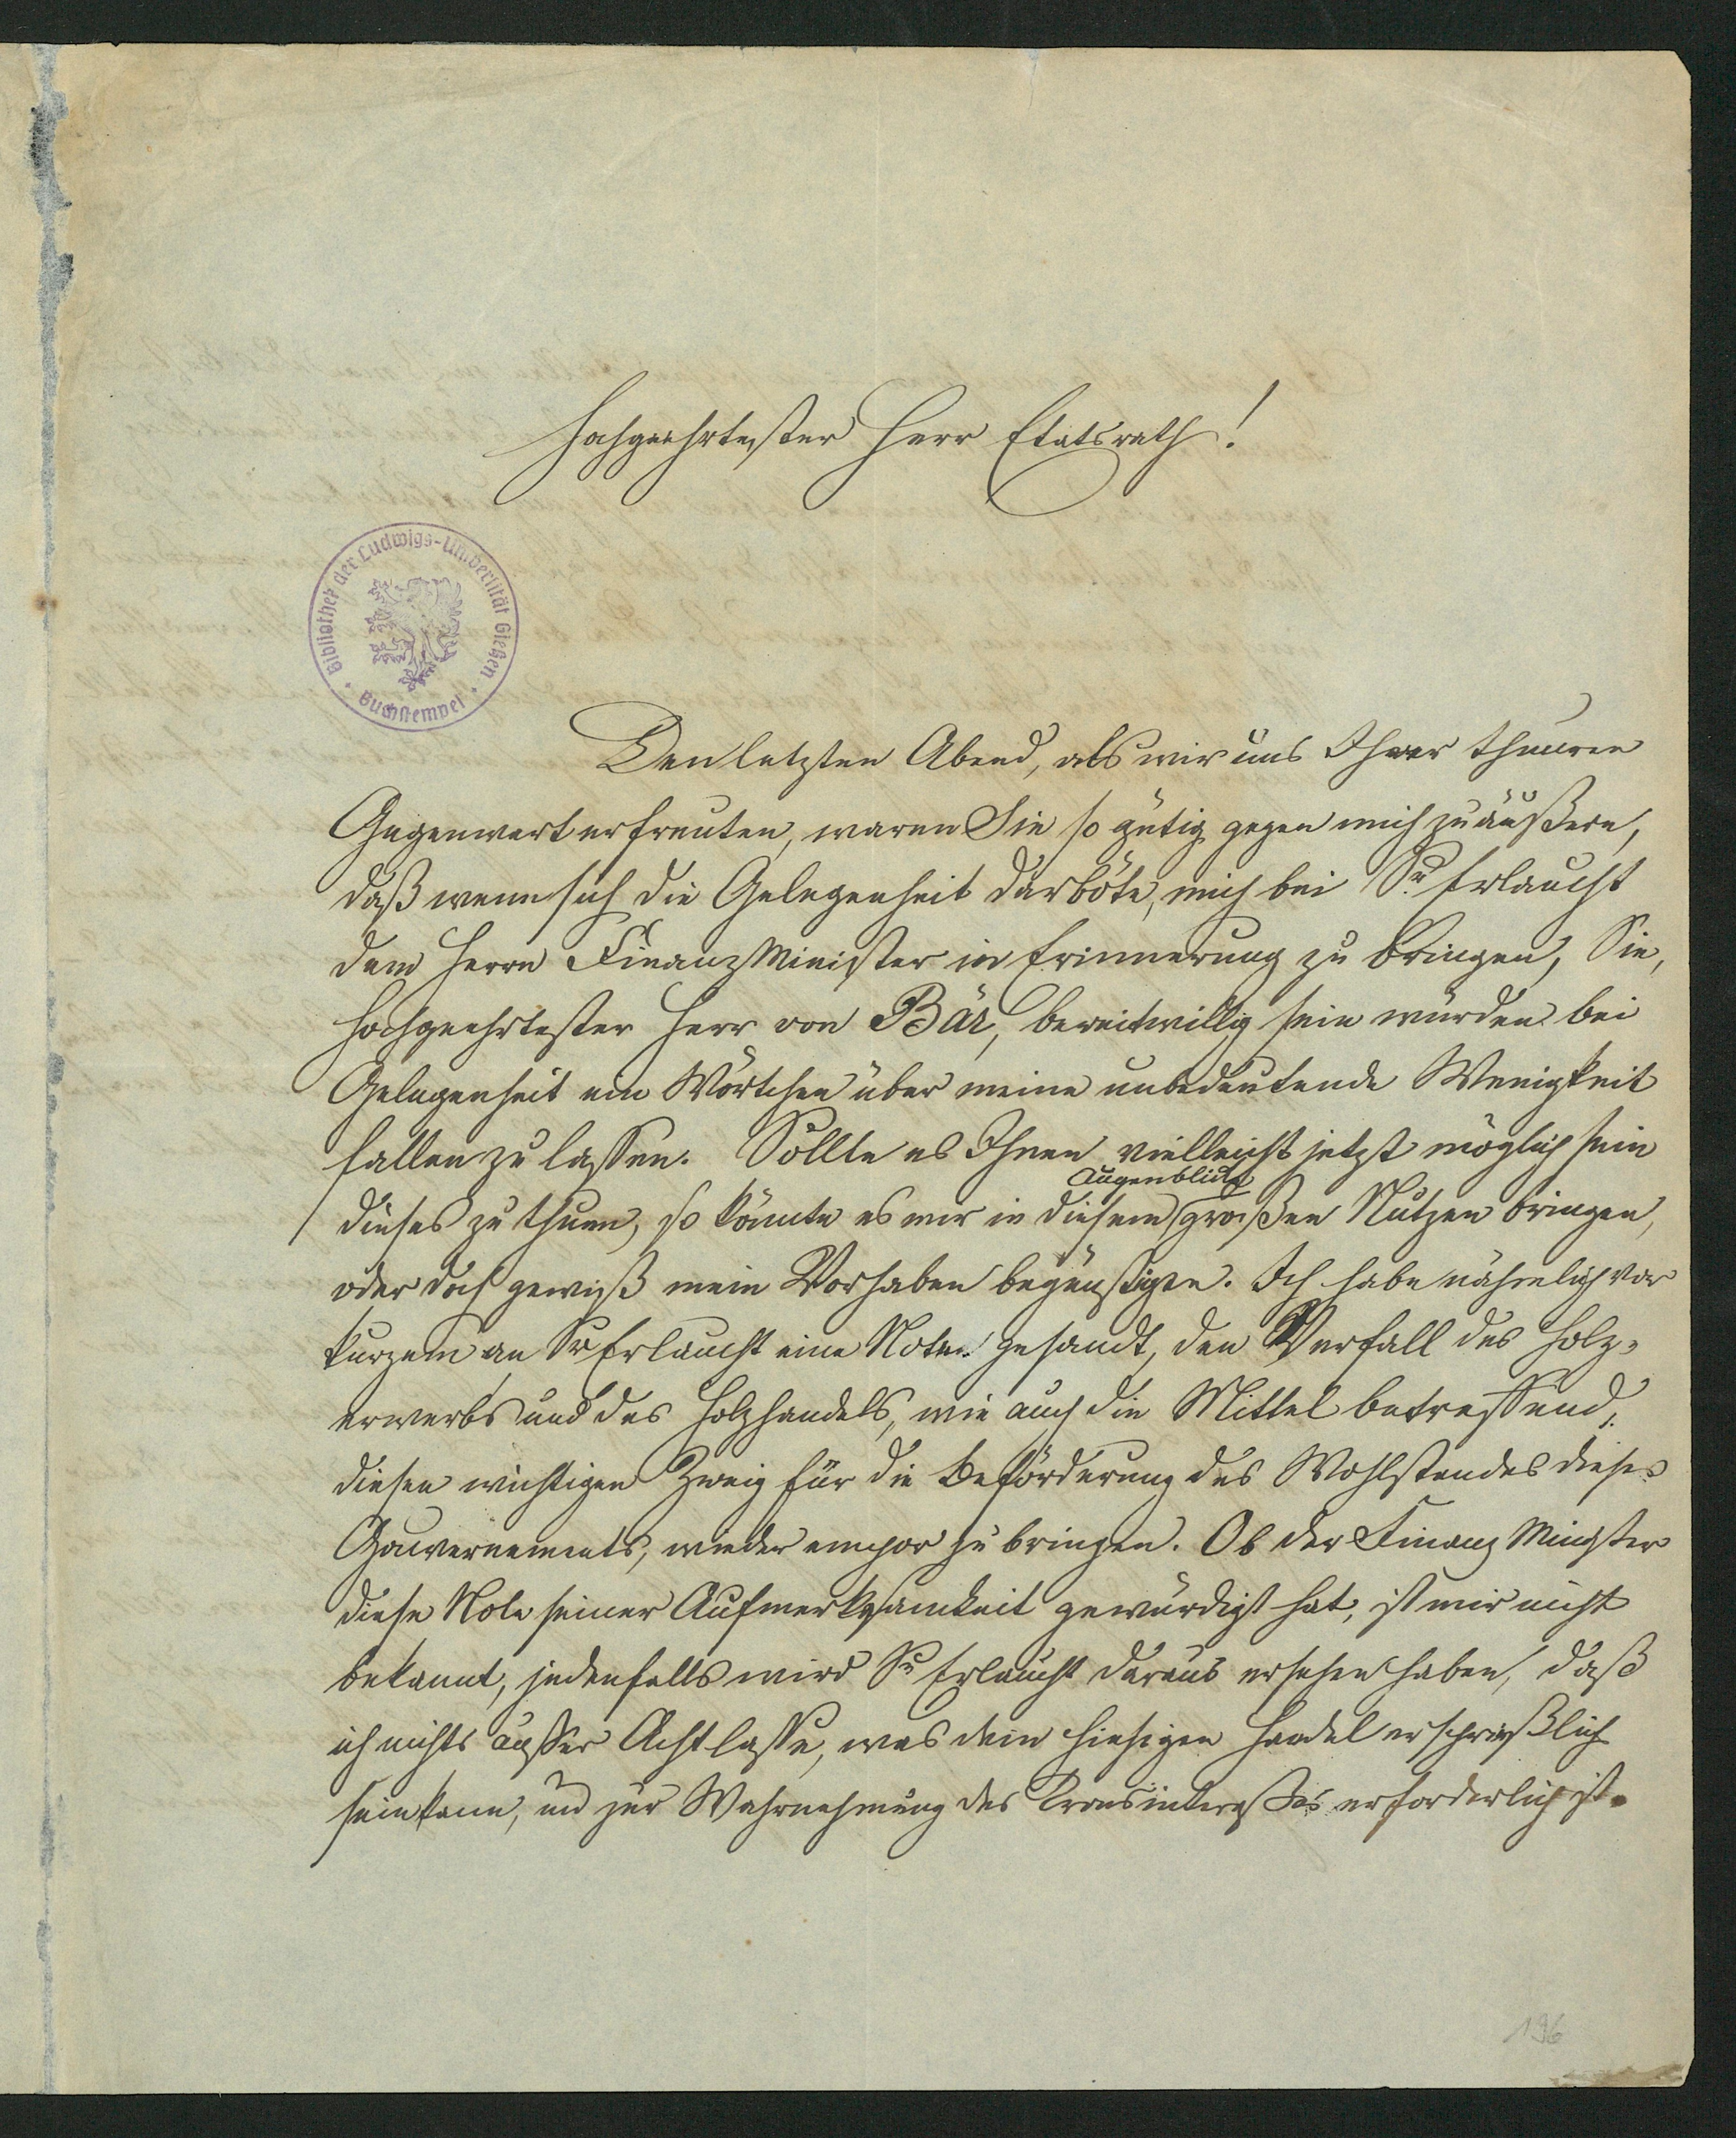 Hochgeehrtester Herr Etatsrath!
Bibliothek der Ludwigs-Universität Gießen
Buchstempel
Den letzten Abend, als wir uns Ihrer theuren
Gegenwart erfreuten, waren Sie so gütig gegen mich zu äußern,
daß wenn sich die Gelegenheit darböte, mich bei Sr Erlaucht
dem Herrn Finanz Minister in Erinnerung zu bringen, Sie,
hochgeehrtester Herr von Bär, bereitwillig sein würden bei
Gelegenheit ein Wörtchen über meine unbedeutende Wenigkeit
fallen zu lassen. Sollte es Ihnen vielleicht jetzt möglich sein
Augenblick
dieses zu thuen, so könnte es mir in diesem großen Nutzen bringen,
oder doch gewiß mein Vorhaben begünstigen. Ich habe nähmlich vor
kurzem an Sr Erlaucht eine Note gesandt, den Verfall des Holz-
erwerbs und des Holzhandels, wie auch die Mittel betreffend,
diesen wichtigen Zweig für die Beförderung des Wohlstandes dieses
Gouvernements, wieder empor zu bringen. Ob der Finanz Minister
diese Note seiner Aufmerksamkeit gewürdigt hat, ist mir nicht
bekannt, jedenfalls wird Sr Erlaucht daraus ersehen haben, daß
ich nichts außer Acht lasse, was dem hiesigen Handel ersprießlich
sein kann, und zur Wahrnehmung des Kronsinteresses erforderlich ist.
196